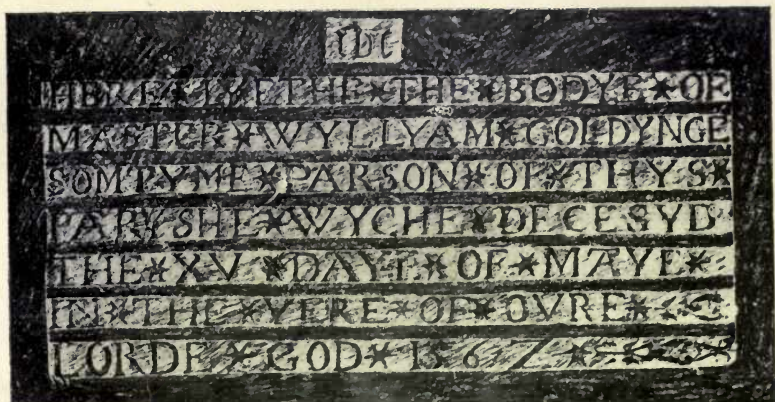 IHC
HERE*LYETHE*THE*BODYE*OF
MASTER*WYLLYAM*GOLDYNGE
SOMTYME*PARSON*OF*THYS*
PARYSHE*WYCHE*DECESYD
THE*XV*DAYE*OF*MAYE*
IN*THE*YERE*OF*OVRE*
LORDE*GOD*1567*